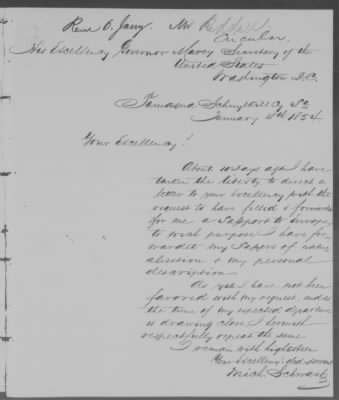 Recd 6. Jany. Mr
Circular.
His Excellency Governor Marcy Secretary of the
United States
Washington D.C.
Tamaqua Schuylkill Cy Pa
January 4th 1854
Your Excellency!
About 10 days ago I have
taken the liberty to direct a
letter to your Excellency with the
request to have filled & forwarded
for me a Passport to Europe,
to wich purpose I have for-
wardet my Papers of natu-
alisation & my personal
description
As yet I have not been
favored with my request, and as
the time of my expected departure
is drawing close, I herewith
respectfully repeat the same
I remain with high esteem
Your Excellency's obed servant
Mich Schwartz